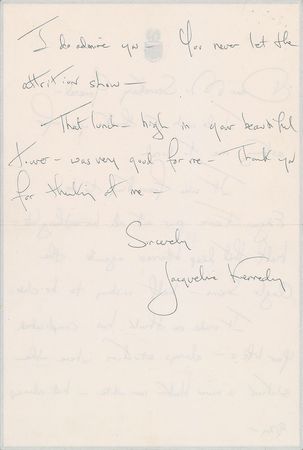 I do admire you - You never let the
attrition show -
That lunch - high in your beautiful
tower - was very good for me - Thank you
for thinking of me -
Sincerely
Jacqueline Kennedy